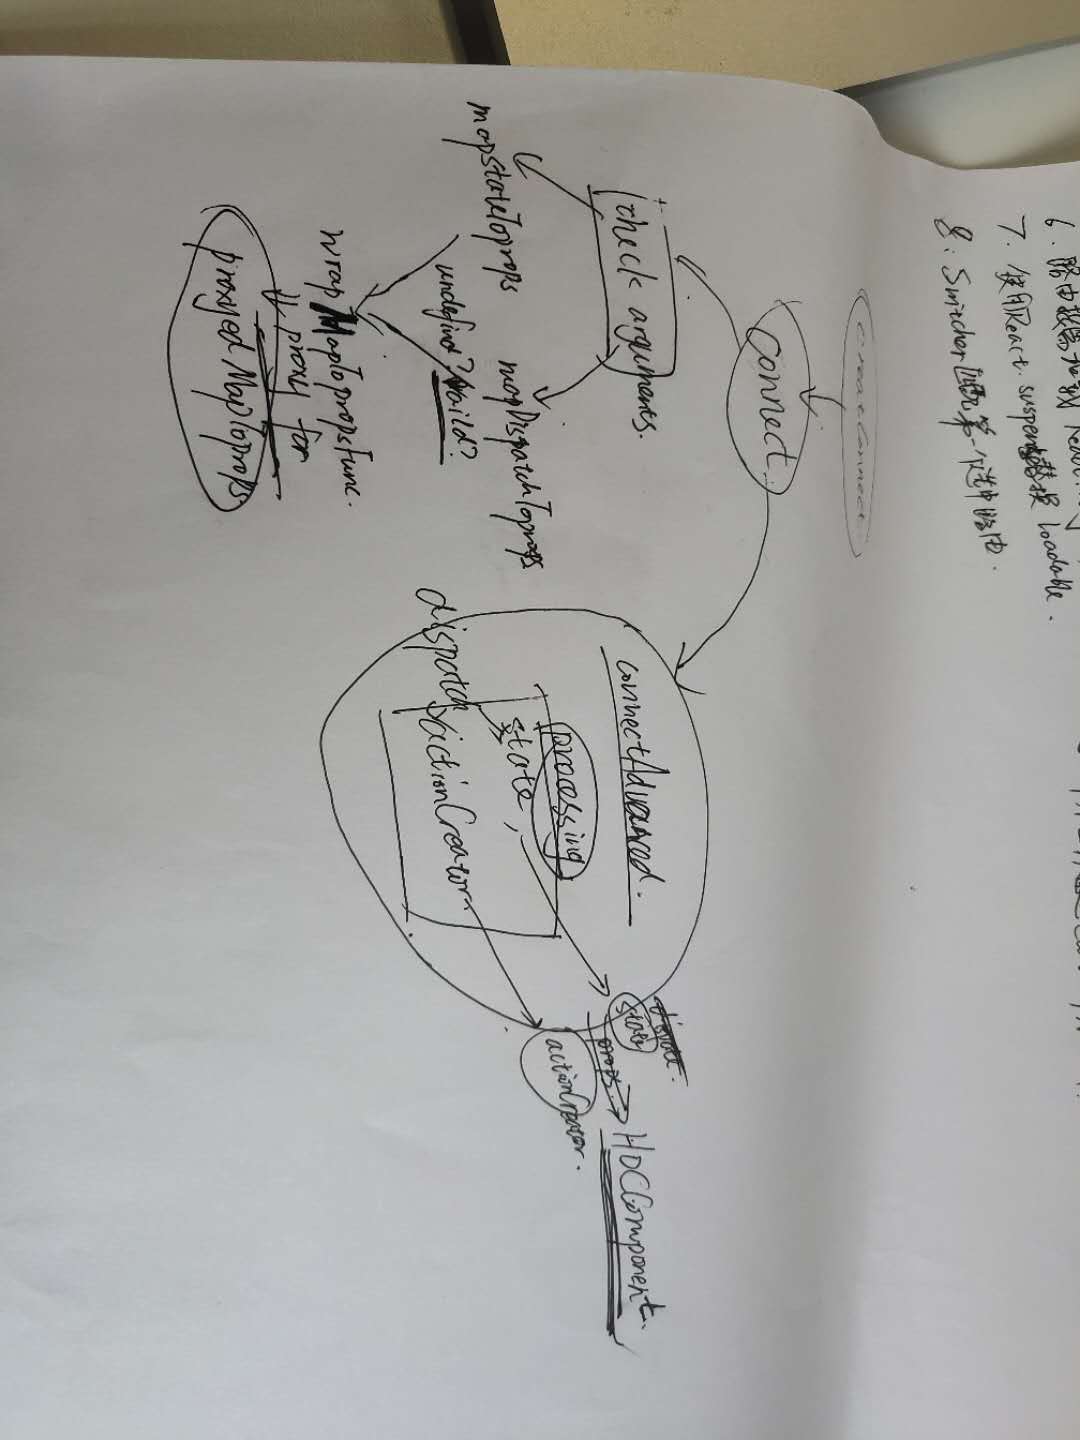 7. 使用React. suspense替换 loadable.
8. Switcher匹配第一个选中路由.
Connect.
check arguments.
mapStateToprops
mapDispatchToprops
undefined?
wrapMapToPropsFunc.
proxy for
proxyedMapToprops.
connectAdvanced.
processing
state,
dispatch
actionCreator
state
props
HOCComponent.
actionCreator.